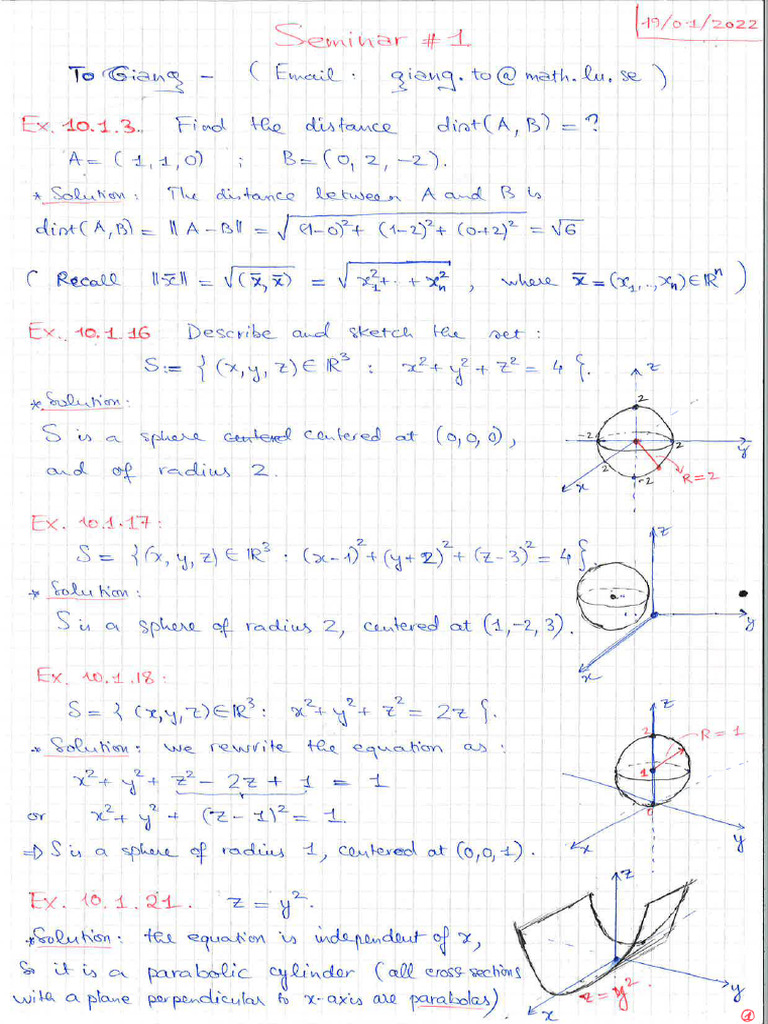 19/01/2022
Seminar #1
To Giang - (Email: giang.to@math.lu.se)
Ex. 10.1.3. Find the distance dist(A,B) = ?
A = (1,1,0) ; B = (0, 2, -2).
* Solution: The distance between A and B is
dist(A,B) = ||A-B|| = √((1-0)² + (1-2)² + (0+2)²) = √6
(Recall ||x̄|| = √(x̄,x̄) = √(x₁² + .. + xₙ²), where x̄ = (x₁,..,xₙ) ∈ ℝⁿ)
Ex. 10.1.16 Describe and sketch the set:
S := {(x,y,z) ∈ ℝ³ : x² + y² + z² = 4}.
* Solution:
S is a sphere centered centered at (0,0,0),
and of radius 2.
z
2
-2
2
y
2
-2
R=2
x
Ex. 10.1.17:
S = {(x,y,z) ∈ ℝ³ : (x-1)² + (y+2)² + (z-3)² = 4}.
* Solution:
S is a sphere of radius 2, centered at (1,-2,3).
z
y
x
Ex. 10.1.18:
S = {(x,y,z) ∈ ℝ³ : x² + y² + z² = 2z}.
* Solution: we rewrite the equation as:
x² + y² + z² - 2z + 1 = 1
or x² + y² + (z-1)² = 1.
⇒ S is a sphere of radius 1, centered at (0,0,1).
z
2
R=1
1
0
x
y
Ex. 10.1.21. z = y².
* Solution: the equation is independent of x,
So it is a parabolic cylinder (all cross sections
with a plane perpendicular to x-axis are parabolas).
z
y
z = y².
x
1